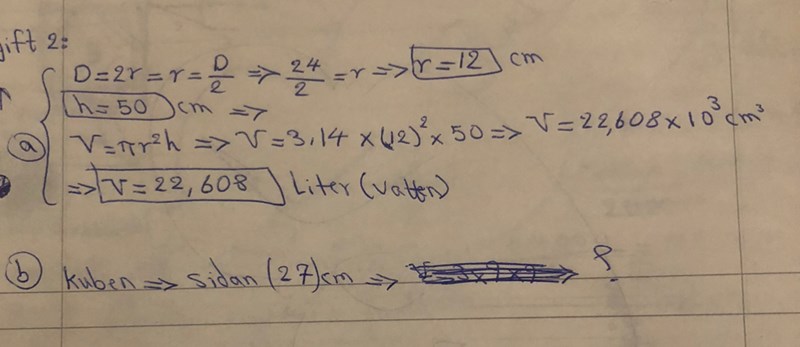 gift 2:
D=2r=r=D/2 => 24/2=r => r=12 cm
h=50 cm =>
a V=πr²h => V=3,14×(12)²×50 => V=22,608×10³cm³
=> V=22,608 Liter (Vatten)
b Kuben => Sidan (27)cm => ?